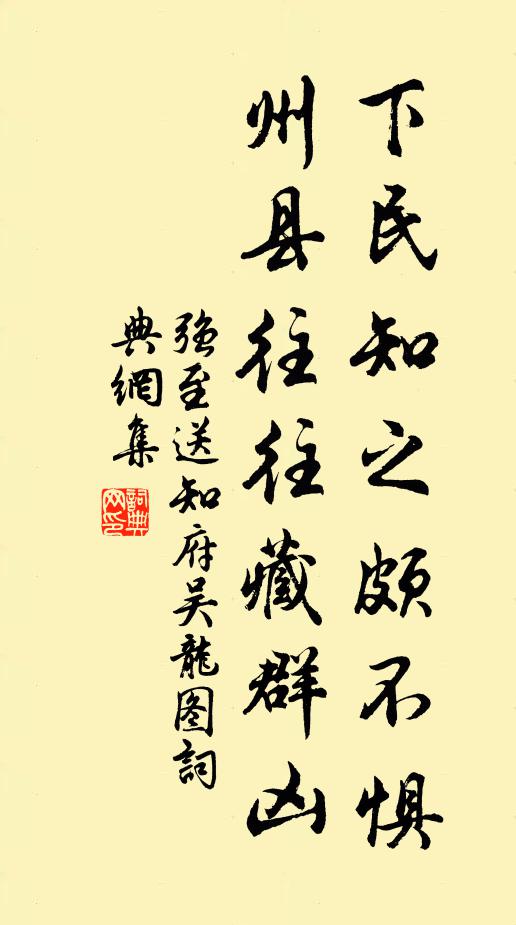 下民知之頗不惧
州县往往藏群凶
强至送知府吴龍图詞
典網集
詞典网印